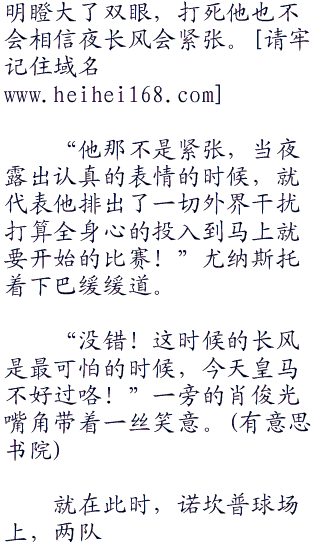 明瞪大了双眼，打死他也不
会相信夜长风会紧张。[请牢
记住域名
www.heihei168.com]
“他那不是紧张，当夜
露出认真的表情的时候，就
代表他排出了一切外界干扰
打算全身心的投入到马上就
要开始的比赛！”尤纳斯托
着下巴缓缓道。
“没错！这时候的长风
是最可怕的时候，今天皇马
不好过咯！”一旁的肖俊光
嘴角带着一丝笑意。(有意思
书院)
就在此时，诺坎普球场
上，两队